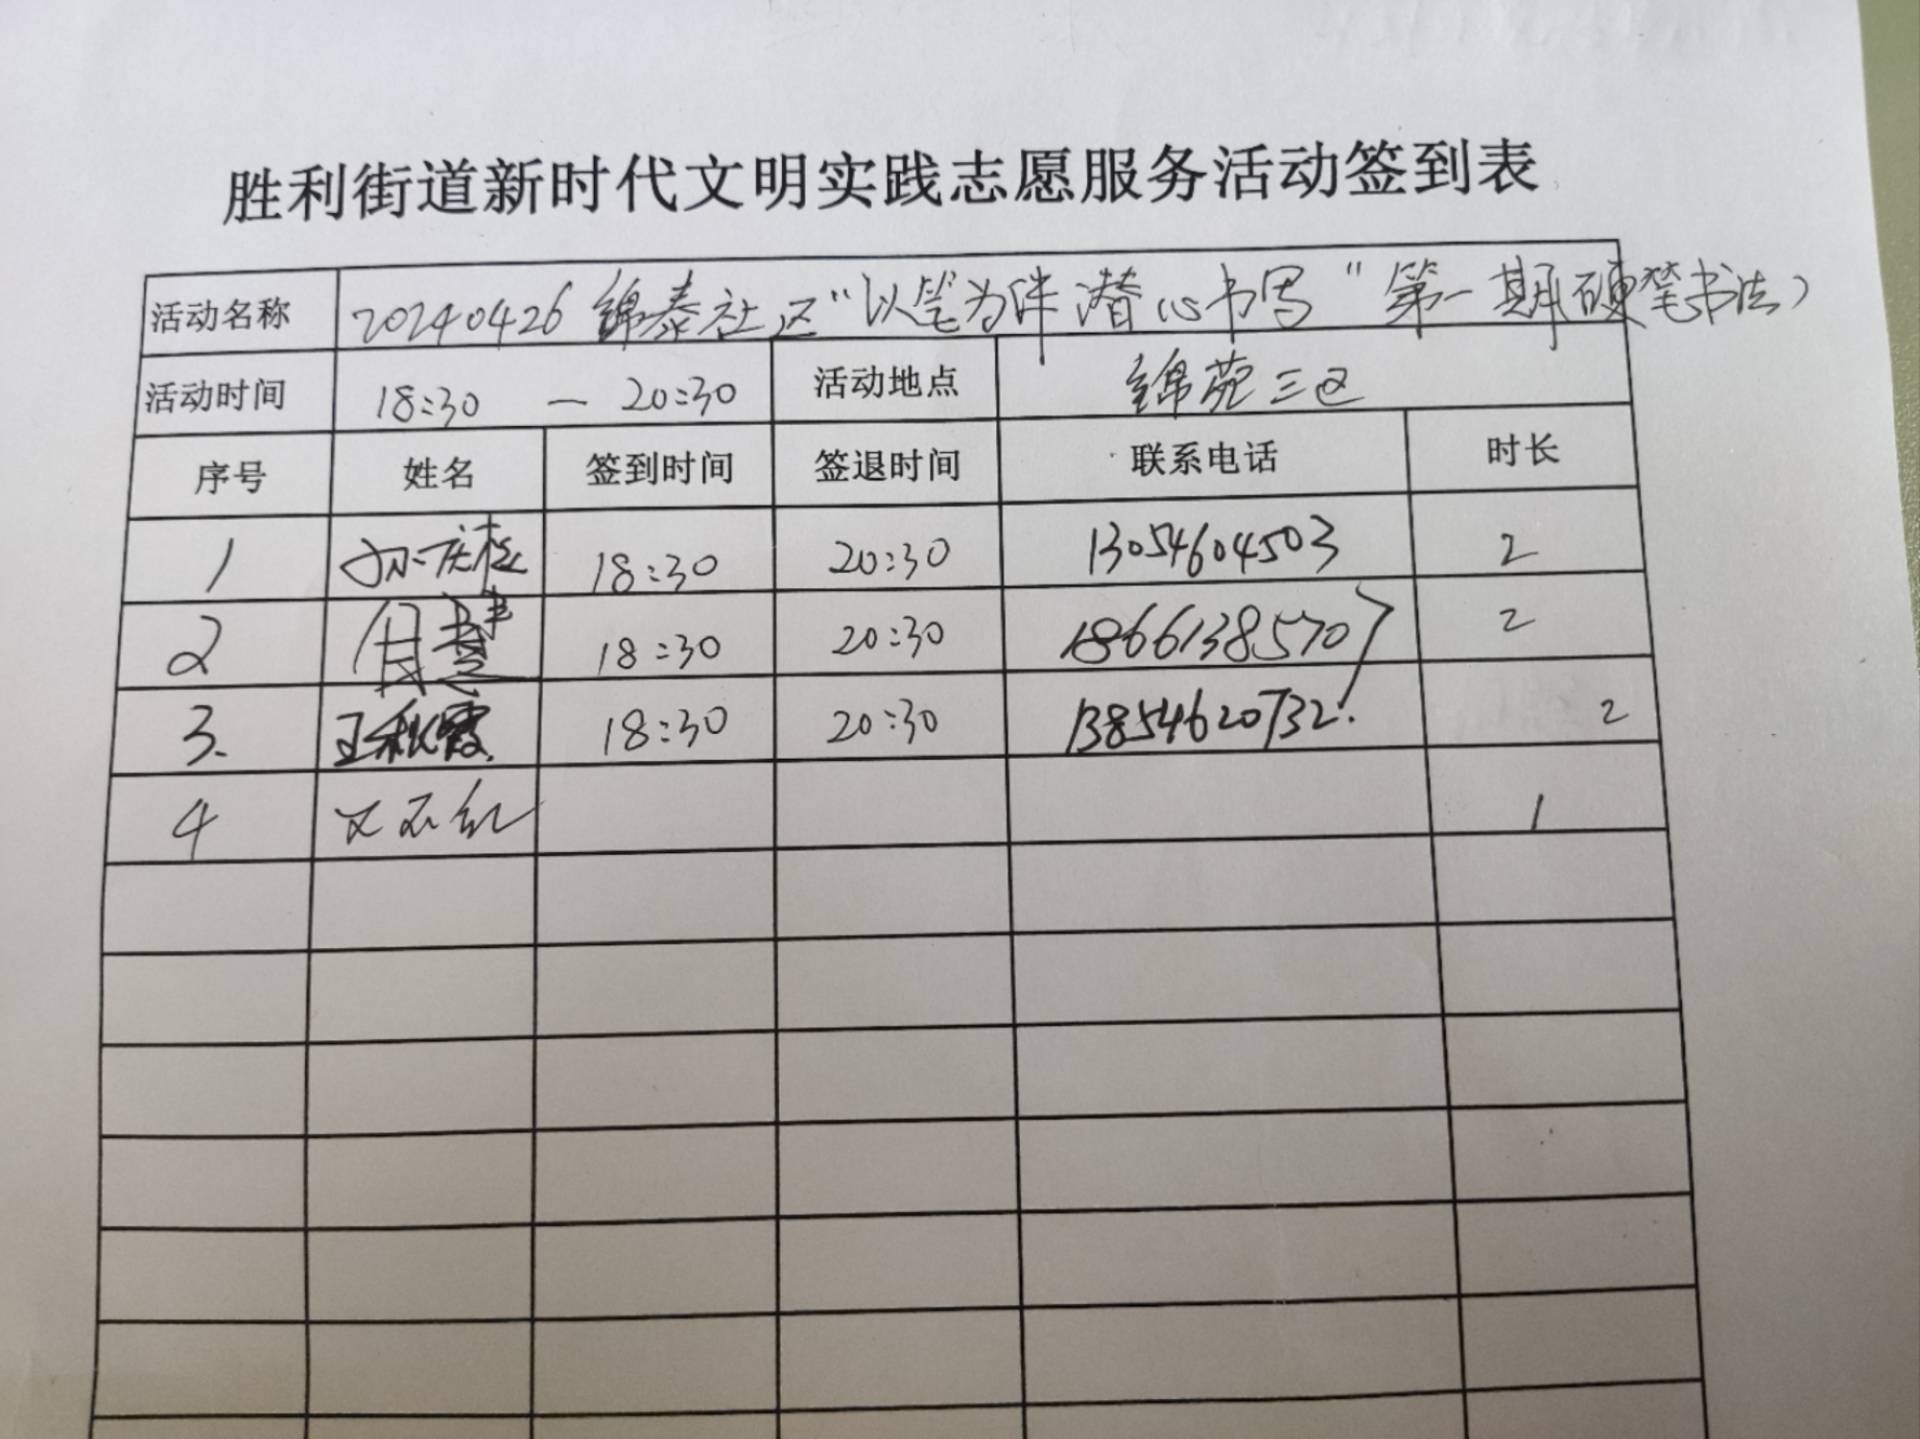 胜利街道新时代文明实践志愿服务活动签到表
活动名称 20240426锦泰社区“以笔为伴 潜心书写”第一期(硬笔书法)
活动时间 18:30 — 20:30 活动地点 锦苑三区
序号 姓名 签到时间 签退时间 联系电话 时长
1 18:30 20:30 13054604503 2
2 18:30 20:30 18661385707 2
3. 王秋霞. 18:30 20:30 13854620732. 2
4 1